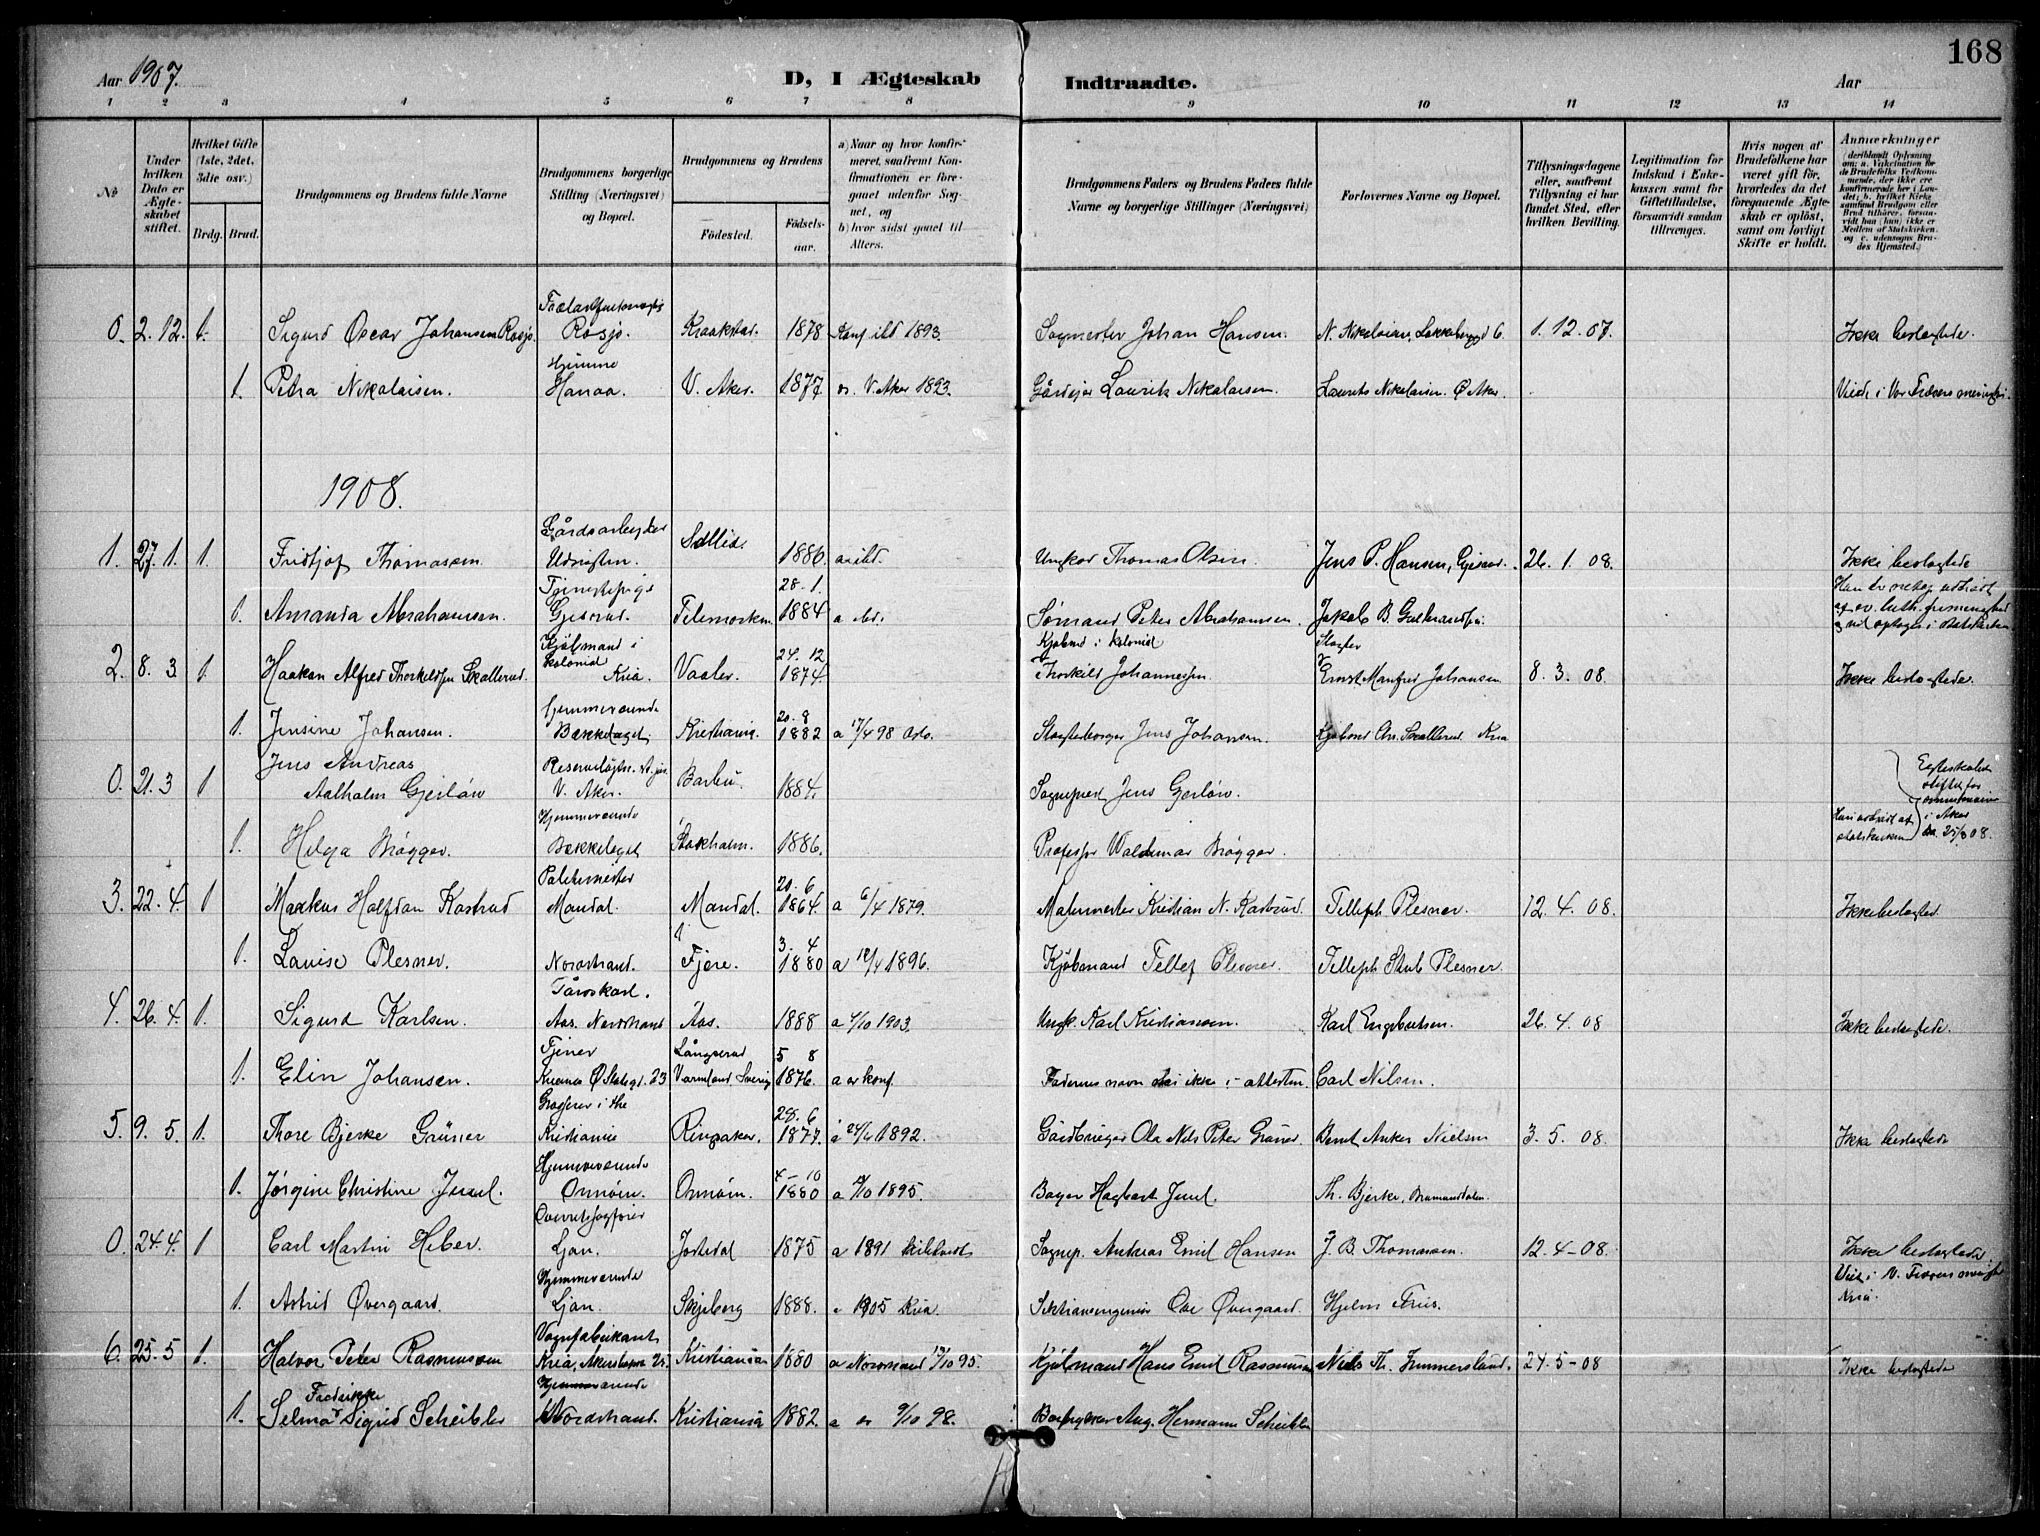 168
Aar 1907.
D, I Ægteskab Indtraadte.
Aar
1 2 3 4 5 6 7 8 9 10 11 12 13 14
No
Under hvilken Dato er Ægteskabet stiftet.
Hvilket Gifte (1ste, 2det, 3die osv.)
Brdg. Brud.
Brudgommens og Brudens fulde Navne
Brudgommens borgerlige Stilling (Næringsvei) og Bopæl.
Brudgommens og Brudens
Fødested.
Fødselsaar.
a) Naar og hvor konfirmeret, saafremt Konfirmationen er foregaaet udenfor Sognet, og
b) hvor sidst gaaet til Alters.
Brudgommens Faders og Brudens Faders fulde Navne og borgerlige Stillinger (Næringsvei)
Forlovernes Navne og Bopæl.
Tillysningsdagene eller, saafremt Tillysning ei har fundet Sted, efter hvilken Bevilling.
Legitimation for Indskud i Enkekassen samt for Giftetilladelse, forsaavidt saadan tiltrænges.
Hvis nogen af Brudefolkene har været gift før, hvorledes da det foregaaende Ægteskab er opløst, samt om lovligt Skifte er holdt.
Anmærkninger
(deriblandt Oplysning om: a. Vaksination for de Brudefolks Vedkommende, der ikke ere konfirmerede her i Landet; b. hvilket Kirkesamfund Brudgom eller Brud tilhører, forsaavidt han (hun) ikke er Medlem af Statskirken, og c. udensogns Brudes Hjemsted.)
0. 2.12. 1. Sigurd Oscar Johansen Rosjø. Rosjø. Kraakstad. 1878 Konf. ibd 1893. Sagmester Johan Hansen. N. Nikolaisen, 1. 12. 07. Ikke beslægtede.
1. Petra Nikolaisen. Hjemme Hanaa. V. Aker. 1877 V. Aker 1893. Gårdejer Laurits Nikolaisen. Laurits Nikolaisen. Ø Aker. Viede i Vor Frelsers menighe.
1908.
1. 27. 1. 1. Fridtjof Thomassen Gårdsarbeyder 1886. Ungkar Thomas Olsen. Jens P. Hansen, Gjersrud. 26. 1. 08. Ikke beslægtede
1. Amanda Abrahamsen. Tjenestepige Gjersrud. Telemarken 28. 1. 1884 a ibd. Sømand Peter Abrahamsen. Jakob B. Gulbrandsen.
2. 8. 3. 1. Haakon Alfred Thorkildsen Skallerud. Kjøbmand i kolonial Kria. Vaaler. 24. 12 1874. Kjøbmd i kolonial Thorkild Johannessen Slagter Ernst Manfred Johansen 8. 3. 08. Ikke beslægtede.
1. Jensine Johansen. Hjemmeværende Bækkelaget. Kristiania. 20. 8 1882 a 17/4 98 Oslo. Slagterborger Jens Johansen. Kjøbmd Chr. Skallerud Kria
0. 21. 3 1 Jens Andreas Aalholm Gjerløw V. Aker. Barbu. 1884. Sognepræst Jens Gjerløw. Egteskabet stiftet for i Aker 08.
1. Helga Brøgger. Hjemmeværende Bækkelaget Stokholm. 1886. Professor Waldemar Brøgger. Har udtrådt af statskirken
3. 22. 4. 1 Markus Halfdan Kastrud Malermester Mandal. Mandal. 20. 6 1864. a 6/4 1879. Malermester Kristian N. Kastrud. Telleph Plesner. 12. 4. 08. Ikke beslægted.
1. Louise Plesner. Nordstrand. Fjære. 3. 4 1880 a 12/4 1896. Kjøbmand Tellef Plesner Telleph Stub Plesner
4. 26. 4. 1. Sigurd Karlsen. Aas. Nordstrand Aas. 1888 a 4/10 1903. Ungk. Karl Kristiansen. Karl Engebretsen. 26. 4. 08 Ikke beslægtede.
1. Elin Johansen. Tjener Kriania Ø Slotsgd. 23 Långserud Värmland Sverig 5 8 1876. a er konf. Faderens navn sto ikke i attesten. Carl Nilsen.
5. 9. 5. 1. Thore Bjerke Grüner Grosserer i the Kristiania Ringsaker. 28. 6 1877. a 24/4 1892. Gårdbruger Ola Nils Peter Grüner Bernt Anker Nielsen 3. 5. 08. Ikke beslægtede
1. Jørgine Christine Juul. Hjemmeværende Ormøen. Ormøen. 4 - 10 1880 a /10 1895. Bager Hagbart Juul. Th. Bjerke, Brumunddalen.
0. 24. 4. 1 Carl Martin Hiber. Overretssagfører Ljan. Jostedal 1875 a 1891 Sognep. Andreas Emil Hansen J. B. Thomassen. 12. 4 - 08. Ikke beslægtede. Viet i V. Frelsers menigh Kria.
1. Astrid Øvergaard. Hjemmeværende Ljan. Skjeberg 1888. a 1905 Kria. Sektionsingeniør Ove Øvergaard. Hjelm Friis.
6. 25. 5 1. Halvor Peter Rasmussen Vognfabrikant Kria, Akersgaden 25. Kristiania 1880 a Nordstrand /10 95. Kjøbmand Hans Emil Rasmussen Niels Th. Immerslund. 24. 5 - 08 Ikke beslægtede
1. Selma Fredrikke Sigrid Scheibler Hjemmeværende Nordstrand. Kristiania 1882. a er 9/10 98. Aug. Hermann Scheibler